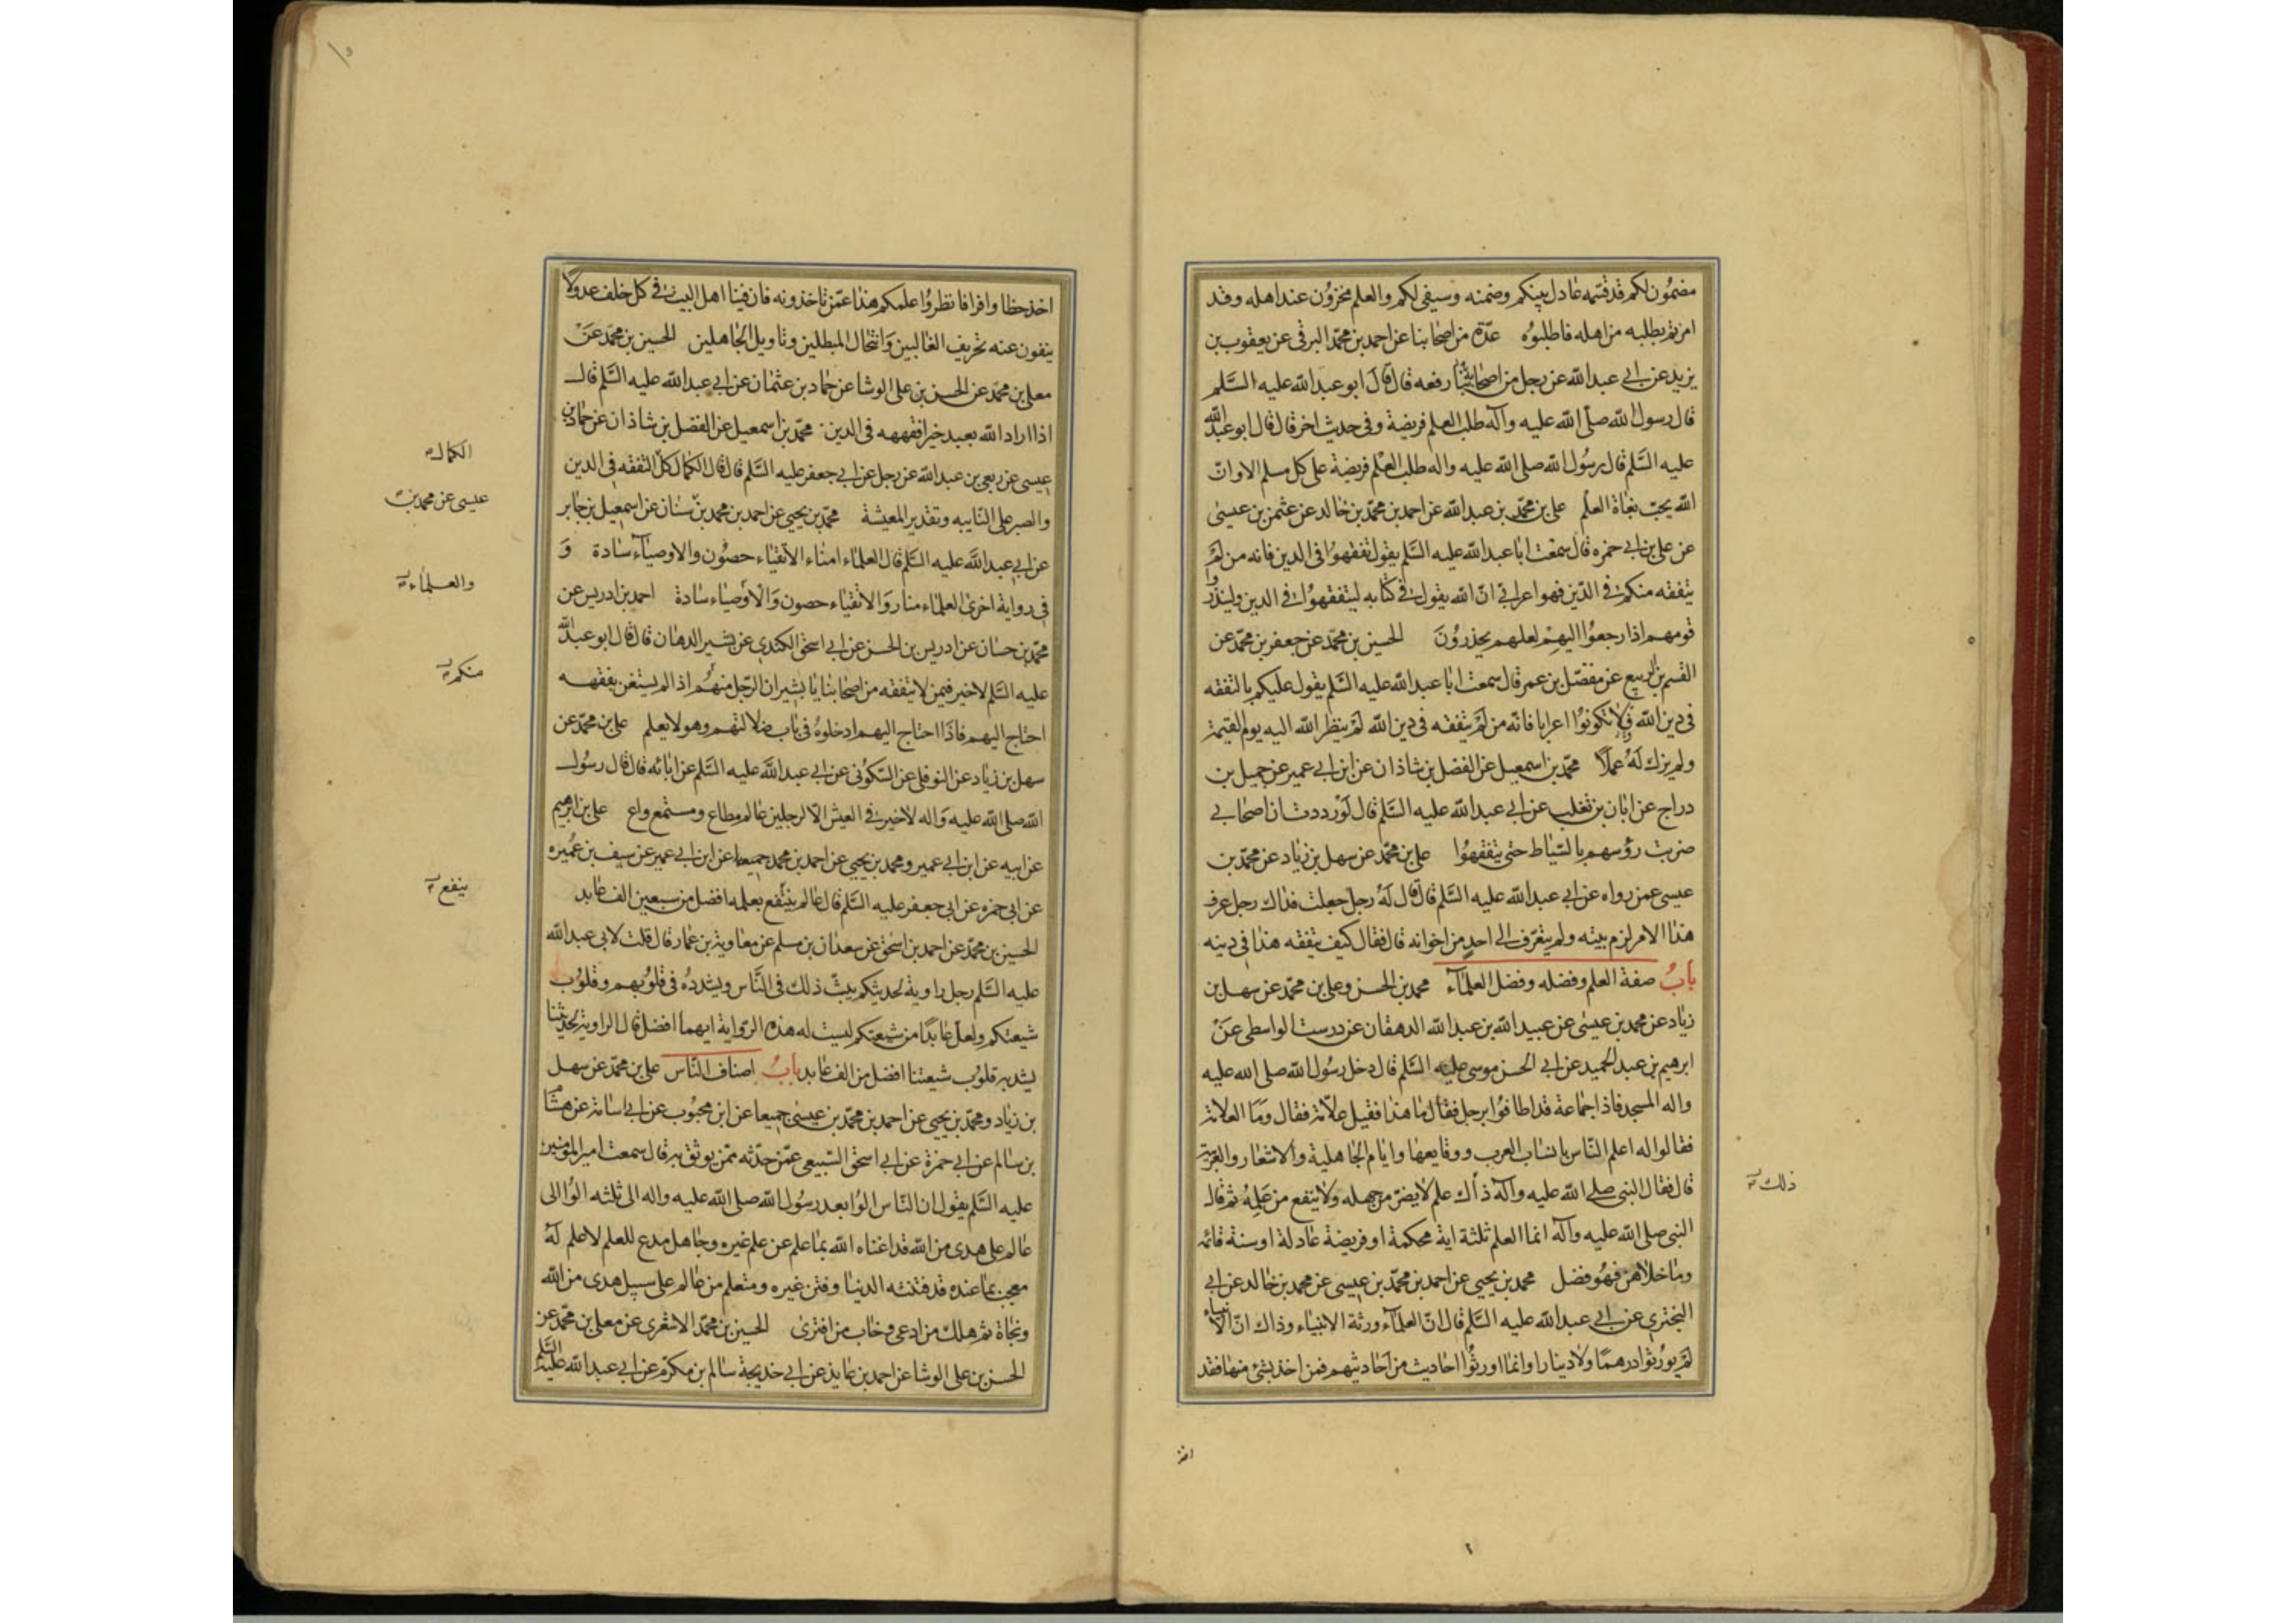 مضمون لكم قد قسمه عادل بينكم وضمنه وسيفى لكم والعلم مخزون عند اهله وقد
امرتم بطلبه من اهله فاطلبوه عدة من اصحابنا عن احمد بن محمد البرقى عن يعقوب بن
يزيد عن ابى عبدالله عن رجل من اصحابنا رفعه قال قال ابو عبدالله عليه السلم
قال رسول الله صلى الله عليه وآله طلب العلم فريضة وفى حديث اخر قال قال ابو عبدالله
عليه السلم قال رسول الله صلى الله عليه واله طلب العلم فريضة على كل مسلم الا وان
الله يحب بغاة العلم على بن محمد بن عبدالله عن احمد بن محمد بن خالد عن عثمن بن عيسى
عن على بن ابى حمزه قال سمعت ابا عبدالله عليه السلم يقول تفقهوا فى الدين فانه من لم
يتفقه منكم فى الدين فهو اعرابى ان الله يقول فى كتابه ليتفقهوا فى الدين ولينذروا
قومهم اذا رجعوا اليهم لعلهم يحذرون الحسين بن محمد عن جعفر بن محمد عن
القسم بن الربيع عن مفضل بن عمر قال سمعت ابا عبدالله عليه السلم يقول عليكم بالتفقه
فى دين الله ولا تكونوا اعرابا فانه من لم يتفقه فى دين الله لم ينظر الله اليه يوم القيمة
ولم يزك له عملا محمد بن اسمعيل عن الفضل بن شاذان عن ابن ابى عمير عن جميل بن
دراج عن ابان بن تغلب عن ابى عبدالله عليه السلم قال لوددت ان اصحابى
ضربت رؤسهم بالسياط حتى يتفقهوا على بن محمد عن سهل بن زياد عن محمد بن
عيسى عمن رواه عن ابى عبدالله عليه السلم قال قال له رجل جعلت فداك رجل عرف
هذا الامر لزم بيته ولم يتعرف الى احد من اخوانه قال فقال كيف يتفقه هذا فى دينه
باب صفة العلم وفضله وفضل العلمآء محمد بن الحسن وعلى بن محمد عن سهل بن
زياد عن محمد بن عيسى عن عبيد الله بن عبدالله الدهقان عن درست الواسطى عن
ابرهيم بن عبد الحميد عن ابى الحسن موسى عليه السلم قال دخل رسول الله صلى الله عليه
واله المسجد فاذا جماعة قد اطافوا برجل فقال ما هذا فقيل علامة فقال وما العلامة
فقالوا له اعلم الناس بانساب العرب ووقايعها وايام الجاهلية والاشعار والعربية
قال فقال النبى صلى الله عليه وآله ذاك علم لا يضر من جهله ولا ينفع من علمه ثم قال
ذلك
النبى صلى الله عليه وآله انما العلم ثلثة اية محكمة او فريضة عادلة او سنة قائمة
وما خلاهن فهو فضل محمد بن يحيى عن احمد بن محمد بن عيسى عن محمد بن خالد عن ابى
البخترى عن ابى عبدالله عليه السلم قال ان العلمآء ورثة الانبياء وذاك ان الانبياء
لم يورثوا درهما ولا دينارا وانما اورثوا احاديث من احاديثهم فمن اخذ بشئ منها فقد
اخذ
١٠
اخذ حظا وافرا فانظروا علمكم هذا عمن تاخذونه فان فينا اهل البيت فى كل خلف عدولا
ينفون عنه تحريف الغالين وانتحال المبطلين وتاويل الجاهلين الحسين بن محمد عن
معلى بن محمد عن الحسن بن على الوشا عن حماد بن عثمان عن ابى عبدالله عليه السلم قال
اذا اراد الله بعبد خيرا فقهه فى الدين محمد بن اسمعيل عن الفضل بن شاذان عن حماد بن
عيسى عن ربعى بن عبدالله عن رجل عن ابى جعفر عليه السلم قال قال الكمال كل التفقه فى الدين
الكمال
والصبر على النايبه وتقدير المعيشة محمد بن يحيى عن احمد بن محمد بن سنان عن اسمعيل بن جابر
عيسى عن محمد بن
عن ابى عبدالله عليه السلم قال العلماء امناء الاتقياء حصون والاوصيآء سادة و
والعلماء
فى رواية اخرى العلماء منار والاتقياء حصون والاوصياء سادة احمد بن ادريس عن
محمد بن حسان عن ادريس بن الحسن عن ابى اسحق الكندى عن بشير الدهان قال قال ابو عبدالله
عليه السلم لا خير فيمن لا يتفقه من اصحابنا يا بشير ان الرجل منهم اذا لم يستغن بفقهه
منكم
احتاج اليهم فاذا احتاج اليهم ادخلوه فى باب ضلالتهم وهو لا يعلم على بن محمد عن
سهل بن زياد عن النوفلى عن السكونى عن ابى عبدالله عليه السلم عن ابائه قال قال رسول
الله صلى الله عليه واله لا خير فى العيش الا لرجلين عالم مطاع ومستمع واع على بن ابرهيم
عن ابيه عن ابن ابى عمير ومحمد بن يحيى عن احمد بن محمد جميعا عن ابن ابى عمير عن سيف بن عميره
عن ابى حمزه عن ابى جعفر عليه السلم قال عالم ينتفع بعلمه افضل من سبعين الف عابد
ينفع
الحسين بن محمد عن احمد بن اسحق عن سعدان بن مسلم عن معاوية بن عمار قال قلت لابى عبدالله
عليه السلم رجل راوية لحديثكم يبث ذلك فى الناس ويشدده فى قلوبهم وقلوب
شيعتكم ولعل عابدا من شيعتكم ليست له هذه الرواية ايهما افضل قال الراوية لحديثنا
يشد به قلوب شيعتنا افضل من الف عابد باب اصناف الناس على بن محمد عن سهل
بن زياد ومحمد بن يحيى عن احمد بن محمد بن عيسى جميعا عن ابن محبوب عن ابى اسامة عن هشام
بن سالم عن ابى حمزة عن ابى اسحق السبيعى عمن حدثه ممن يوثق به قال سمعت امير المؤمنين
عليه السلم يقول ان الناس الوا بعد رسول الله صلى الله عليه واله الى ثلثه الوا الى
عالم على هدى من الله قد اغناه الله بما علم عن علم غيره وجاهل مدع للعلم لا علم له
معجب بما عنده قد فتنته الدنيا وفتن غيره ومتعلم من عالم على سبيل هدى من الله
ونجاة ثم هلك من ادعى وخاب من افترى الحسين بن محمد الاشعرى عن معلى بن محمد عن
الحسن بن على الوشا عن احمد بن عايذ عن ابى خديجة سالم بن مكرم عن ابى عبدالله عليه السلم